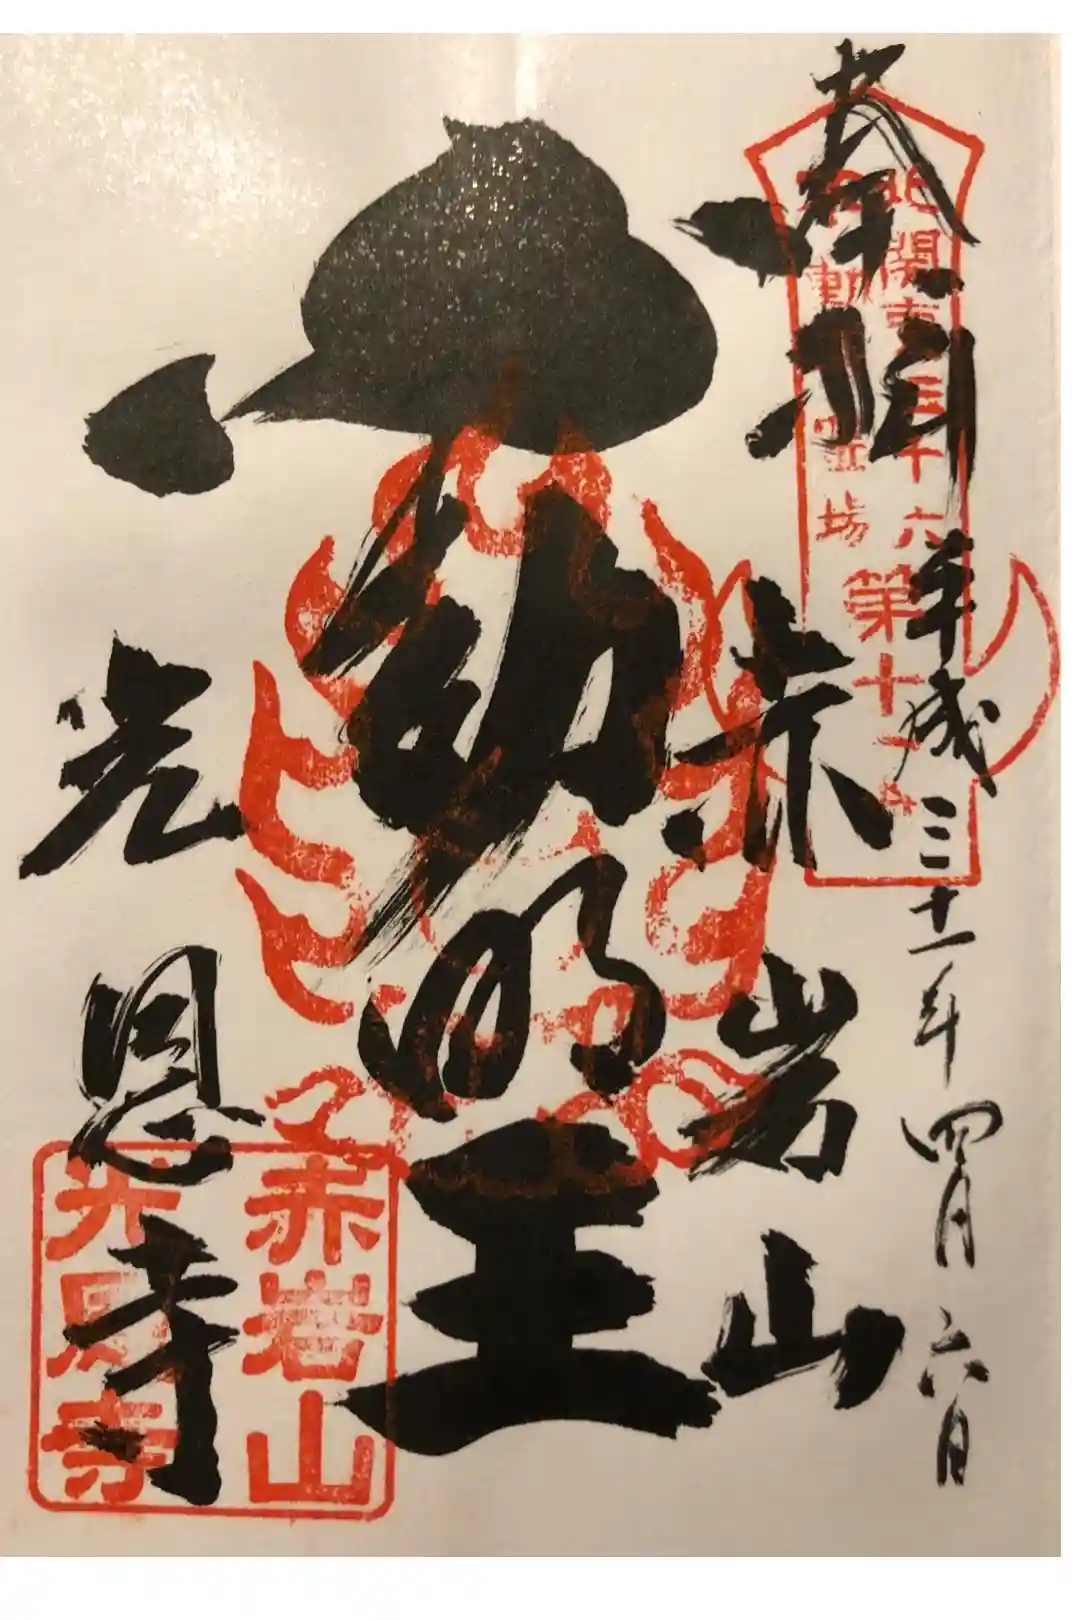 奉拝
平成三十一年四月六日
北関東三十六
不動霊場
第十二番
赤岩山
不動明王
光恩寺
赤岩山
光恩寺